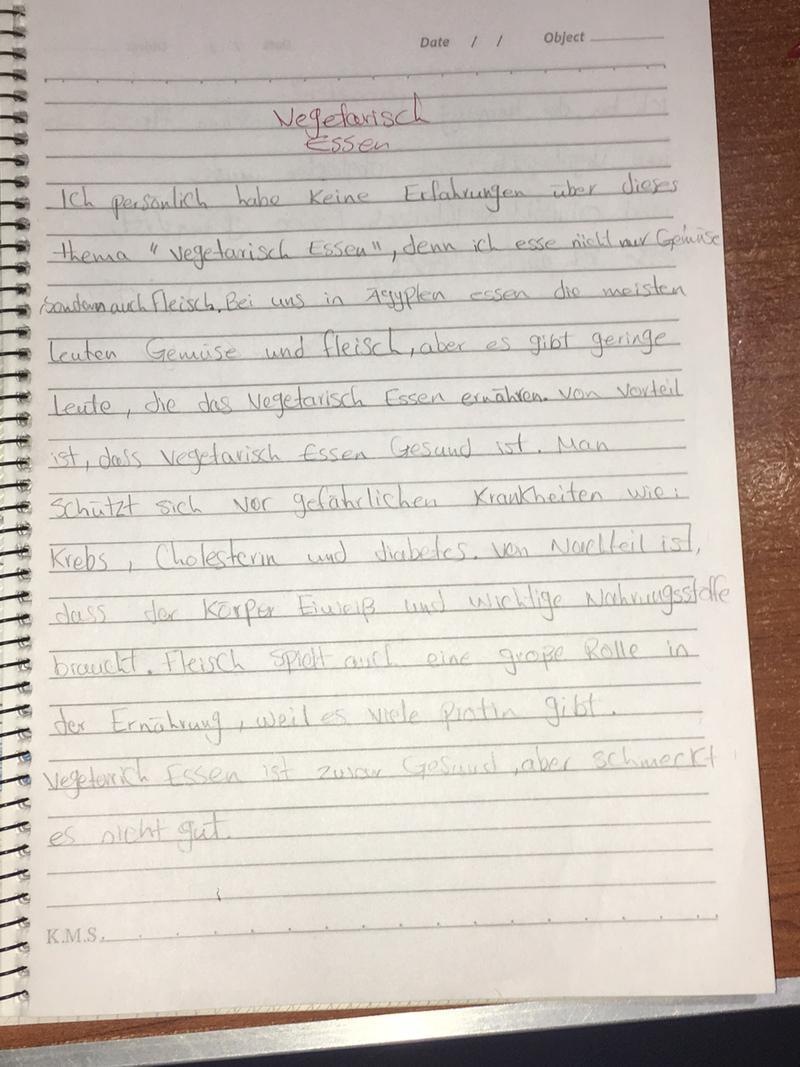 Date / / Object
Vegetarisch
Essen
Ich persönlich habe keine Erfahrungen über dieses
thema "vegetarisch Essen", denn ich esse nicht nur Gemüse
sondern auch fleisch. Bei uns in Ägypten essen die meisten
leuten Gemüse und fleisch, aber es gibt geringe
leute, die das Vegetarisch Essen ernähren. von vorteil
ist, dass vegetarisch Essen Gesund ist. Man
schützt sich vor gefährlichen Krankheiten wie:
Krebs, Cholesterin und diabetes. von Nachteil ist,
dass der Körper Eiweiß und wichtige Nahrungsstoffe
braucht. Fleisch spielt auch eine große Rolle in
der Ernährung, weil es viele Protin gibt.
vegeterich Essen ist zwar Gesund, aber schmeckt
es nicht gut.
K.M.S.